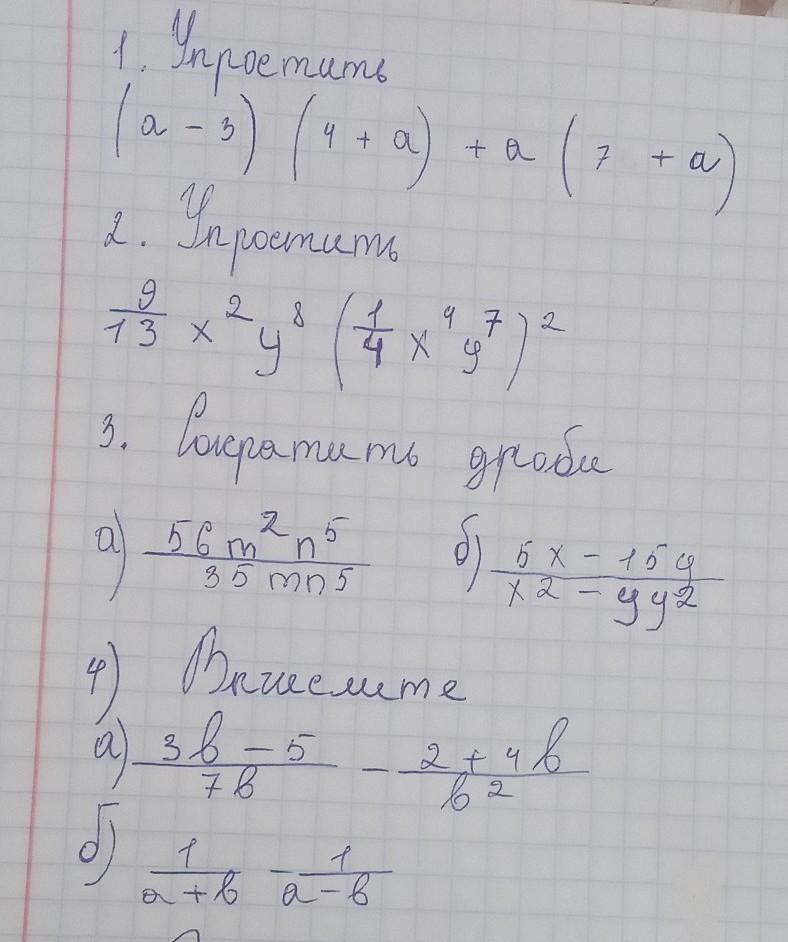 1. Упростить
(a - 3) (4 + a) + a (7 + a)
2. Упростить
9/13 x² y⁸ (1/4 x⁴ y⁷)²
3. Сократить дроби
а) 56 m² n⁵ / 35 mn5 б) 5x - 15y / x2 - yy2
4) Вычислите
а) 3b - 5 / 7b - 2 + 4b / b2
б) 1 / a + b - 1 / a - b